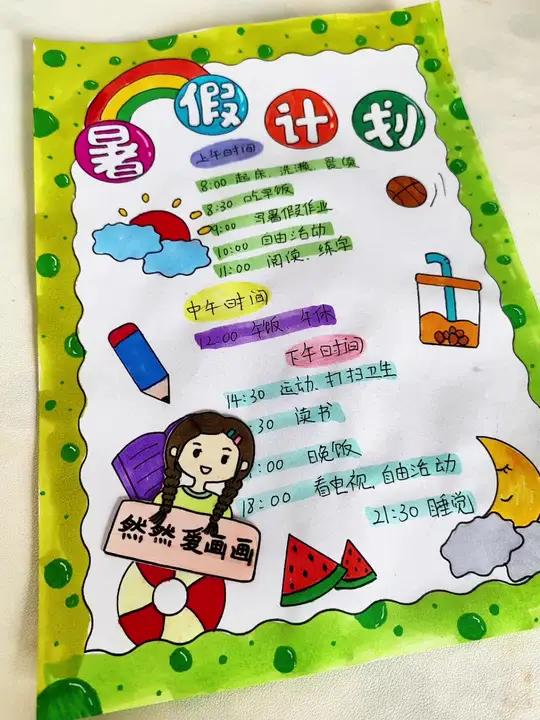 暑假计划
上午时间
8:00 起床、洗漱、晨读
8:30 吃早饭
9:00 写暑假作业
10:00 自由活动
11:00 阅读、练字
中午时间
12:00 午饭、午休
下午时间
14:30 运动、打扫卫生
:30 读书
:00 晚饭
18:00 看电视、自由活动
21:30 睡觉
然然爱画画